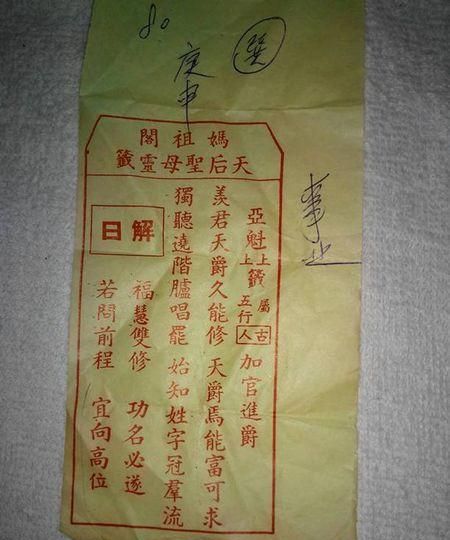 80
庚申
事业
媽祖閣
天后聖母靈籤
亞魁 上上籤 屬五行 古人 加官進爵
羨君天爵久能修 天爵焉能富可求
獨聽遶階臚唱罷 始知姓字冠羣流
解曰
福慧雙修 功名必遂
若問前程 宜向高位